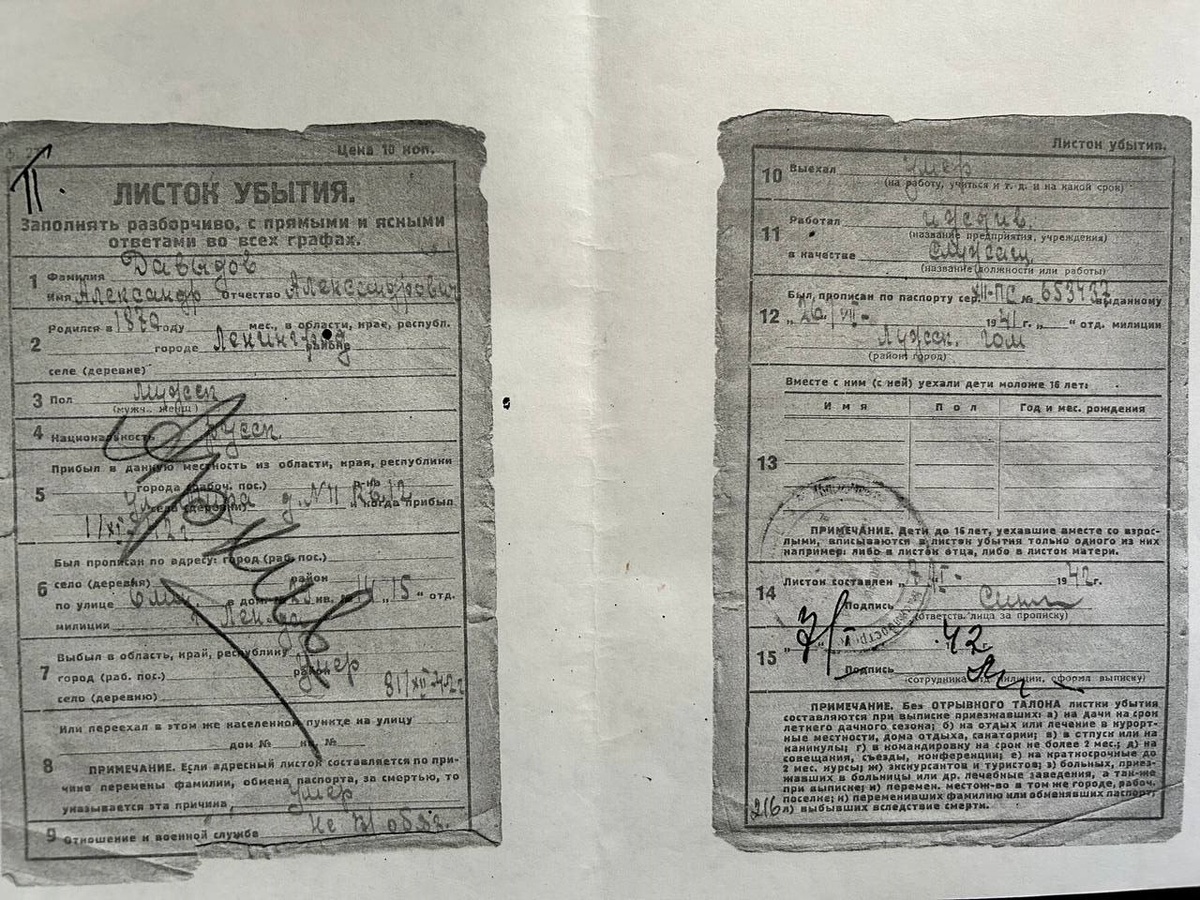 Цена 10 коп.
П.
ЛИСТОК УБЫТИЯ.
Заполнять разборчиво, с прямыми и ясными
ответами во всех графах.
1 Фамилия Давыдов
Имя Александр Отчество Александрович
Родился в году мес., в области, крае, республ.
2 городе Ленинград районе
селе (деревне)
3 Пол мужск
(мужч., женщ.)
4 Национальность русск
Прибыл в данную местность из области, края, республики
5 города (рабоч. пос.) р-на
село (деревни) и когда прибыл
Был прописан по адресу: город (раб. пос.)
6 село (деревня) район
по улице дом № кв. № 14 „15“ отд.
милиции
Выбыл в область, край, республику
7 город (раб. пос.) район Умер
село (деревню)
Или переехал в этом же населенном пункте на улицу
дом № кв. №
8 ПРИМЕЧАНИЕ. Если адресный листок составляется по при-
чине перемены фамилии, обмена паспорта, за смертью, то
указывается эта причина Умер
9 Отношение к военной службе
Умер
Листок убытия.
10 Выехал Умер
(на работу, учиться и т. д. и на какой срок)
Работал иждив.
11 (название предприятия, учреждения)
в качестве
(название должности или работы)
Был прописан по паспорту сер. XII-ПС № выданному
12 1941 г. „ “ отд. милиции
(район город)
Вместе с ним (с ней) уехали дети моложе 16 лет:
Имя Пол Год и мес. рождения
13
ПРИМЕЧАНИЕ. Дети до 16 лет, уехавшие вместе со взрос-
лыми, вписываются в листок убытия только одного из них
например: либо в листок отца, либо в листок матери.
14 Листок составлен 1942 г.
Подпись
(ответств. лица за прописку)
15 42
Подпись
(сотрудника отд. милиции, оформ. выписку)
ПРИМЕЧАНИЕ. Без ОТРЫВНОГО ТАЛОНА листки убытия
составляются при выписке приезжавших: а) на дачи на срок
летнего дачного сезона; б) на отдых или лечение в курорт-
ные местности, дома отдыха, санатории; в) в отпуск или на
каникулы; г) в командировку на срок не более 2 мес.; д) на
совещания, съезды, конференции; е) на краткосрочные до
2 мес. курсы; ж) экскурсантов и туристов; з) больных, приез-
жавших в больницы или др. лечебные заведения, а так-же
при выписке: и) перемен. местож-во в том же городе, рабоч.
поселке; к) переменивших фамилию или обменявших паспорт;
л) выбывших вследствие смерти.
216